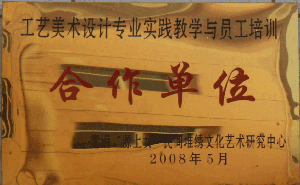 工艺美术设计专业实践教学与员工培训
合作单位
民间堆绣文化艺术研究中心
2008年5月